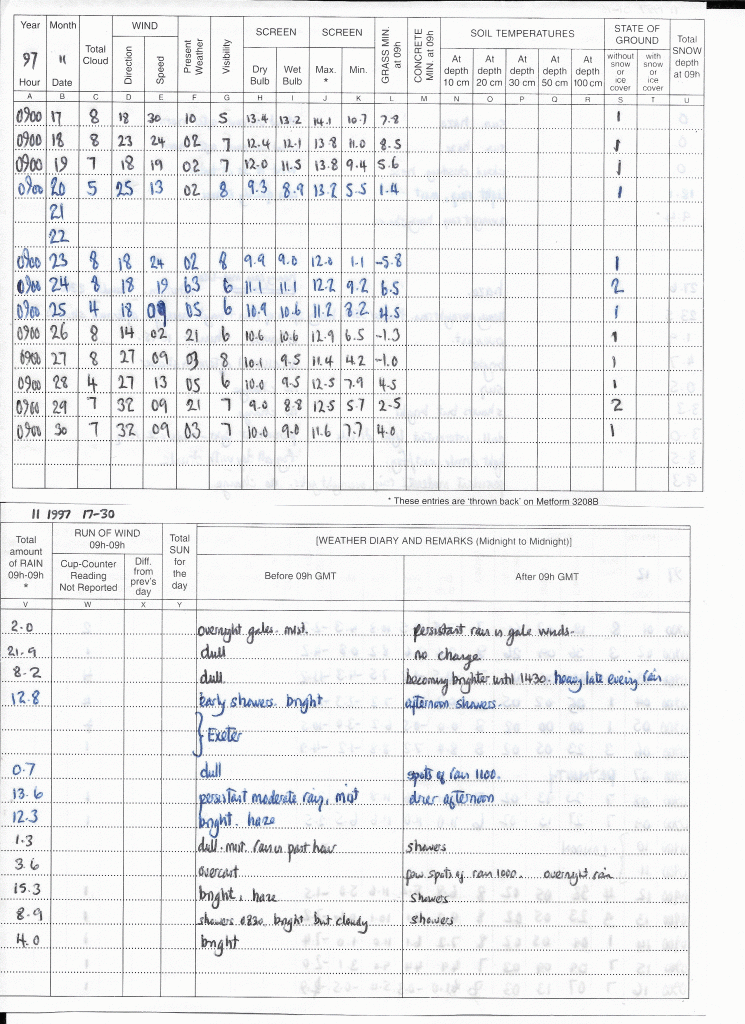 Year Month Total Cloud WIND Present Weather Visibility SCREEN SCREEN GRASS MIN. at 09h CONCRETE MIN. at 09h SOIL TEMPERATURES STATE OF GROUND Total SNOW depth at 09h
97 11 Direction Speed Dry Bulb Wet Bulb Max. * Min. At depth 10 cm At depth 20 cm At depth 30 cm At depth 50 cm At depth 100 cm without snow or ice cover with snow or ice cover
Hour Date
A B C D E F G H I J K L M N O P Q R S T U
0900 17 8 18 30 10 5 13.4 13.2 14.1 10.7 7.8 1
0900 18 8 23 24 02 7 12.4 12.1 13.8 11.0 8.5 1
0900 19 7 18 19 02 7 12.0 11.5 13.8 9.4 5.6 1
0900 20 5 25 13 02 8 9.3 8.9 13.2 5.5 1.4 1
21
22
0900 23 8 18 24 02 8 9.9 9.0 12.0 1.1 -5.8 1
0900 24 8 18 19 63 6 11.1 11.1 12.2 9.2 6.5 2
0900 25 4 18 09 05 6 10.9 10.6 11.2 8.2 4.5 1
0900 26 8 14 02 21 6 10.6 10.6 12.9 6.5 -1.3 1
0900 27 8 27 09 03 8 10.1 9.5 11.4 4.2 -1.0 1
0900 28 4 27 13 05 6 10.0 9.5 12.5 7.9 4.5 1
0900 29 7 32 09 21 7 9.0 8.8 12.5 5.7 2.5 2
0900 30 7 32 09 03 7 10.0 9.0 11.6 7.7 4.0 1
* These entries are 'thrown back' on Metform 3208B
11 1997 17-30
Total amount of RAIN 09h-09h * RUN OF WIND 09h-09h Total SUN for the day [WEATHER DIARY AND REMARKS (Midnight to Midnight)]
Cup-Counter Reading Not Reported Diff. from prev's day Before 09h GMT After 09h GMT
V W X Y
2.0 overnight gales. mist. persistant rain & gale winds.
21.9 dull no change
8.2 dull becoming brighter until 1430. heavy late evening rain
12.8 early showers. bright afternoon showers.
Exeter
0.7 dull spots of rain 1100.
13.6 persistant moderate rain, mist drier afternoon
12.3 bright. haze
1.3 dull. mist. rain in past hour showers
3.6 overcast few spots of rain 1000. overnight rain
15.3 bright, haze showers
8.9 showers 0830. bright but cloudy showers
4.0 bright